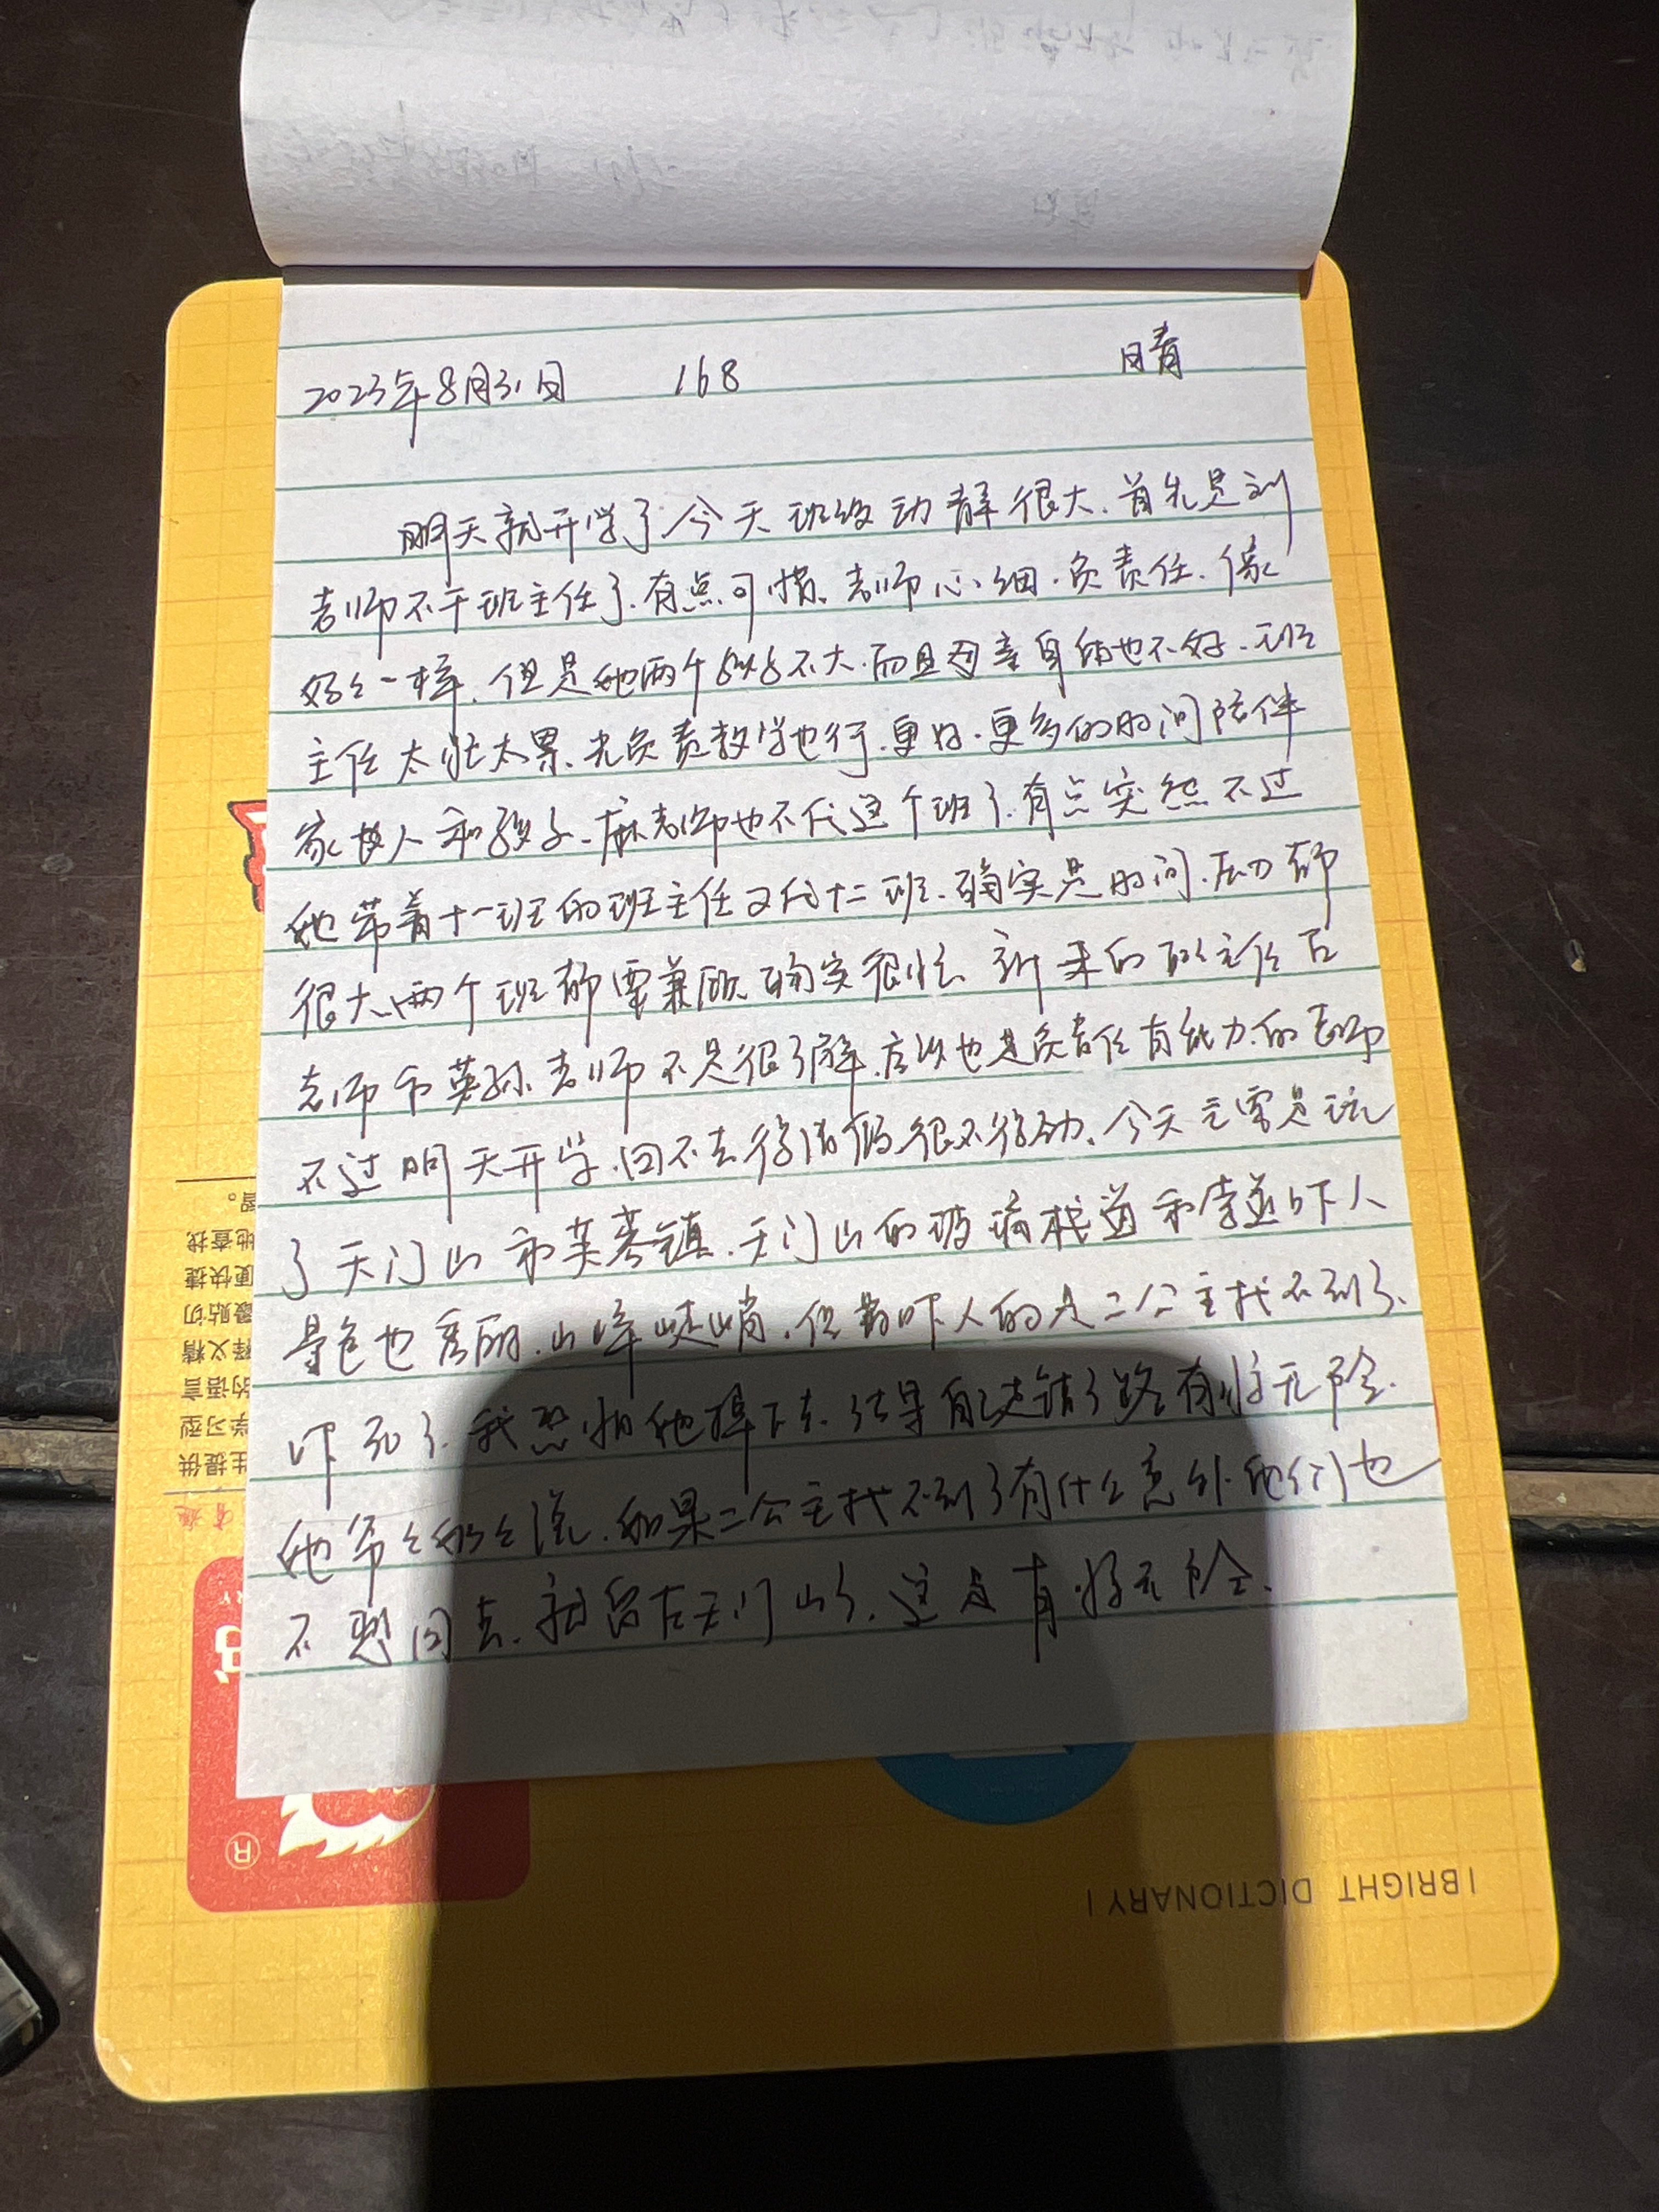 2023年8月31日 168 晴
明天就开学了今天班级动静很大.首先是刘
老师不干班主任了.有点可惜.老师心细.负责任.像
妈妈一样.但是她两个娃娃不大.而且母亲身体也不好.班
主任太忙太累.光负责教学也行.更好.更多的时间陪伴
家里人和孩子.麻老师也不代这个班了.有点突然不过
她带着十一班的班主任又代十二班.确实是时间.压力都
很大.两个班都要兼顾.确实很忙.新来的班主任
老师和英语老师不是很了解.应该也是负责任有能力的老师
不过明天开学.回不去得请假很不得劲.今天主要是玩
了天门山和芙蓉镇.天门山的玻璃栈道和索道吓人
景色也秀丽.山峰陡峭.但最吓人的是二公主找不到了.
吓死了.我恐怕她掉下去.结果自己走错了路有惊无险.
她爷爷奶奶说.如果二公主找不到了有什么意外.他们也
不想回去.就留在天门山了.这是有惊无险.
学习型
的语言
释义精
最贴切
更快捷
地查找
| BRIGHT DICTIONARY |
®